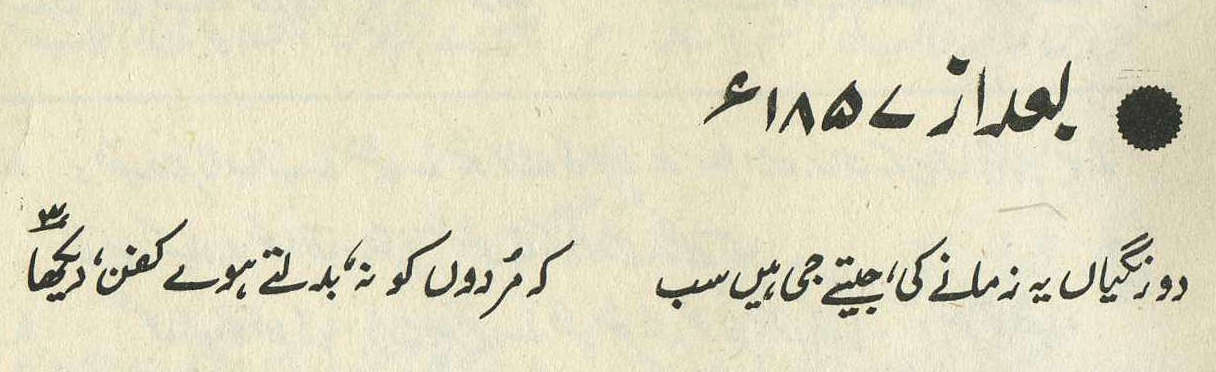 بعد از ۱۸۵۷ء
دو رنگیاں یہ زمانے کی، جیتے جی ہیں سب کہ مُردوں کو نہ، بدلتے ہوے کفن، دیکھا۳